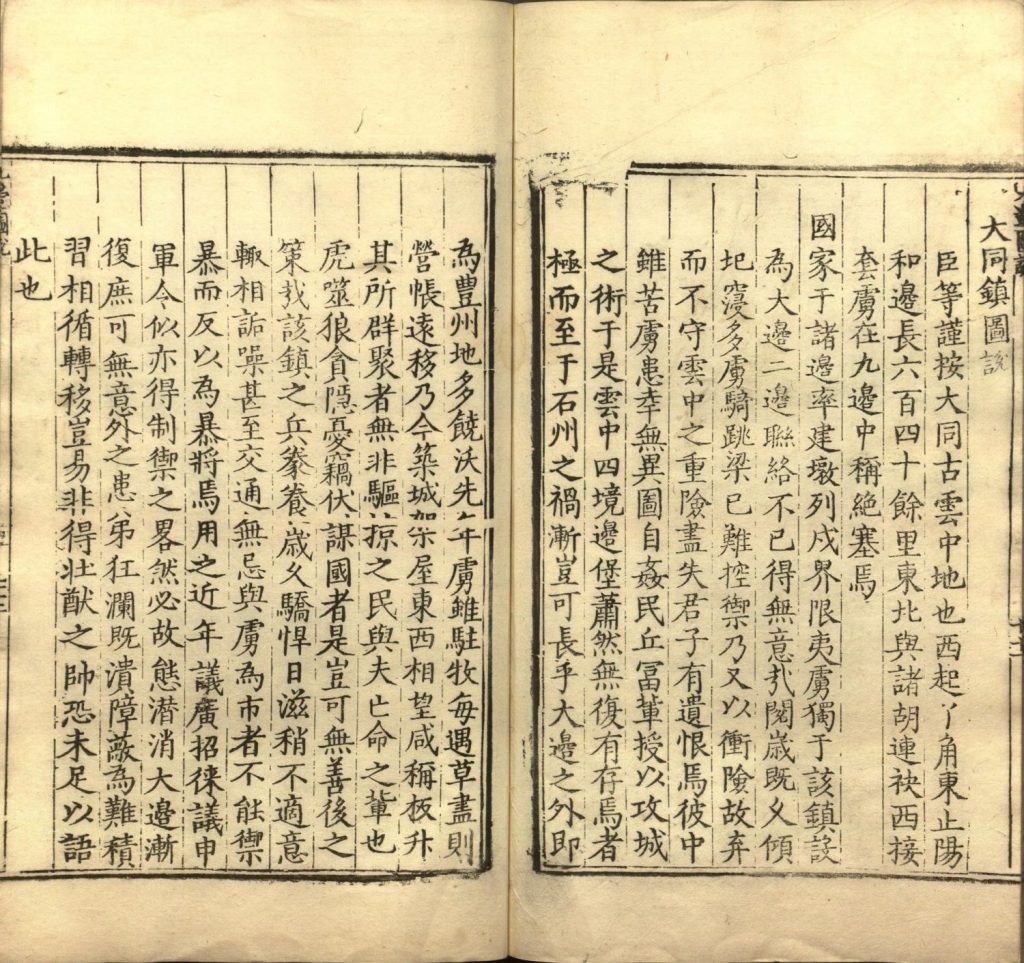 大同鎮圖說
臣等謹按大同古雲中地也西起丫角東止陽
和邊長六百四十餘里東北與諸胡連袂西接
套虜在九邊中稱絶塞焉
國家于諸邊率建墩列戍界限夷虜獨于該鎮設
為大邊二邊聯絡不已得無意哉閱歲既乆傾
圮寖多虜騎跳梁已難控禦乃又以衝險故弃
而不守雲中之重險盡失君子有遺恨焉彼中
雖苦虜患幸無異圖自姦民丘冨軰授以攻城
之術于是雲中四境邊堡蕭然無復有存焉者
極而至于石州之禍漸豈可長乎大邊之外即
為豊州地多饒沃先年虜雖駐牧每遇草盡則
營帳遠移乃今築城架屋東西相望咸稱板升
其所群聚者無非驅掠之民與夫亡命之軰也
虎噬狼貪隱憂竊伏謀國者是豈可無善後之
策哉該鎮之兵豢養歲乆驕悍日滋稍不適意
輙相詬噪甚至交通無忌與虜為市者不能禦
暴而反以為暴將焉用之近年議廣招徠議申
軍令似亦得制禦之畧然必故態潛消大邊漸
復庶可無意外之患苐狂瀾既潰障蔽為難積
習相循轉移豈易非得壮猷之帥恐未足以語
此也